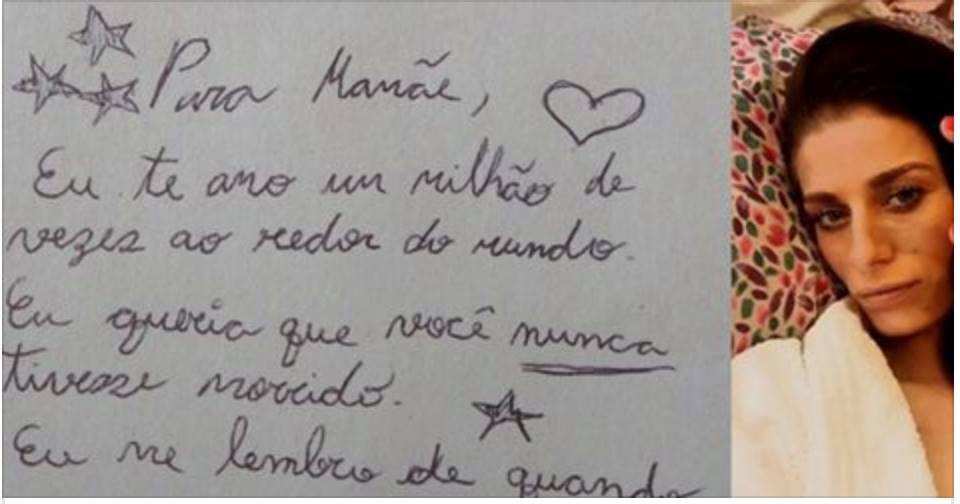 Para Mamãe,
Eu te amo um milhão de
vezes ao redor do mundo.
Eu queria que você nunca
tivesse morrido.
Eu me lembro de quando